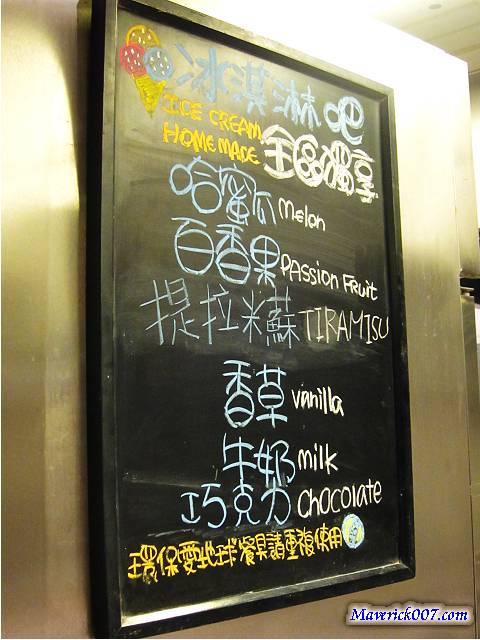 冰淇淋吧
ICE CREAM
HOME MADE
全品獨享
哈蜜瓜 Melon
百香果 PASSION FRUIT
提拉米蘇 TIRAMISU
香草 vanilla
牛奶 milk
巧克力 CHOCOLATE
環保愛地球 餐具請重復使用
Maverick007.com